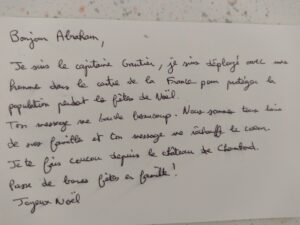 Bonjour Abraham,
Je suis le capitaine Gautier, je suis déployé avec mes
hommes dans le centre de la France pour protéger la
population pendant les fêtes de Noël.
Ton message me touche beaucoup. Nous sommes tous loin
de nos familles et ton message me réchauffe le cœur.
Je te fais coucou depuis le château de Chambord.
Passe de bonnes fêtes en famille !
Joyeux Noël